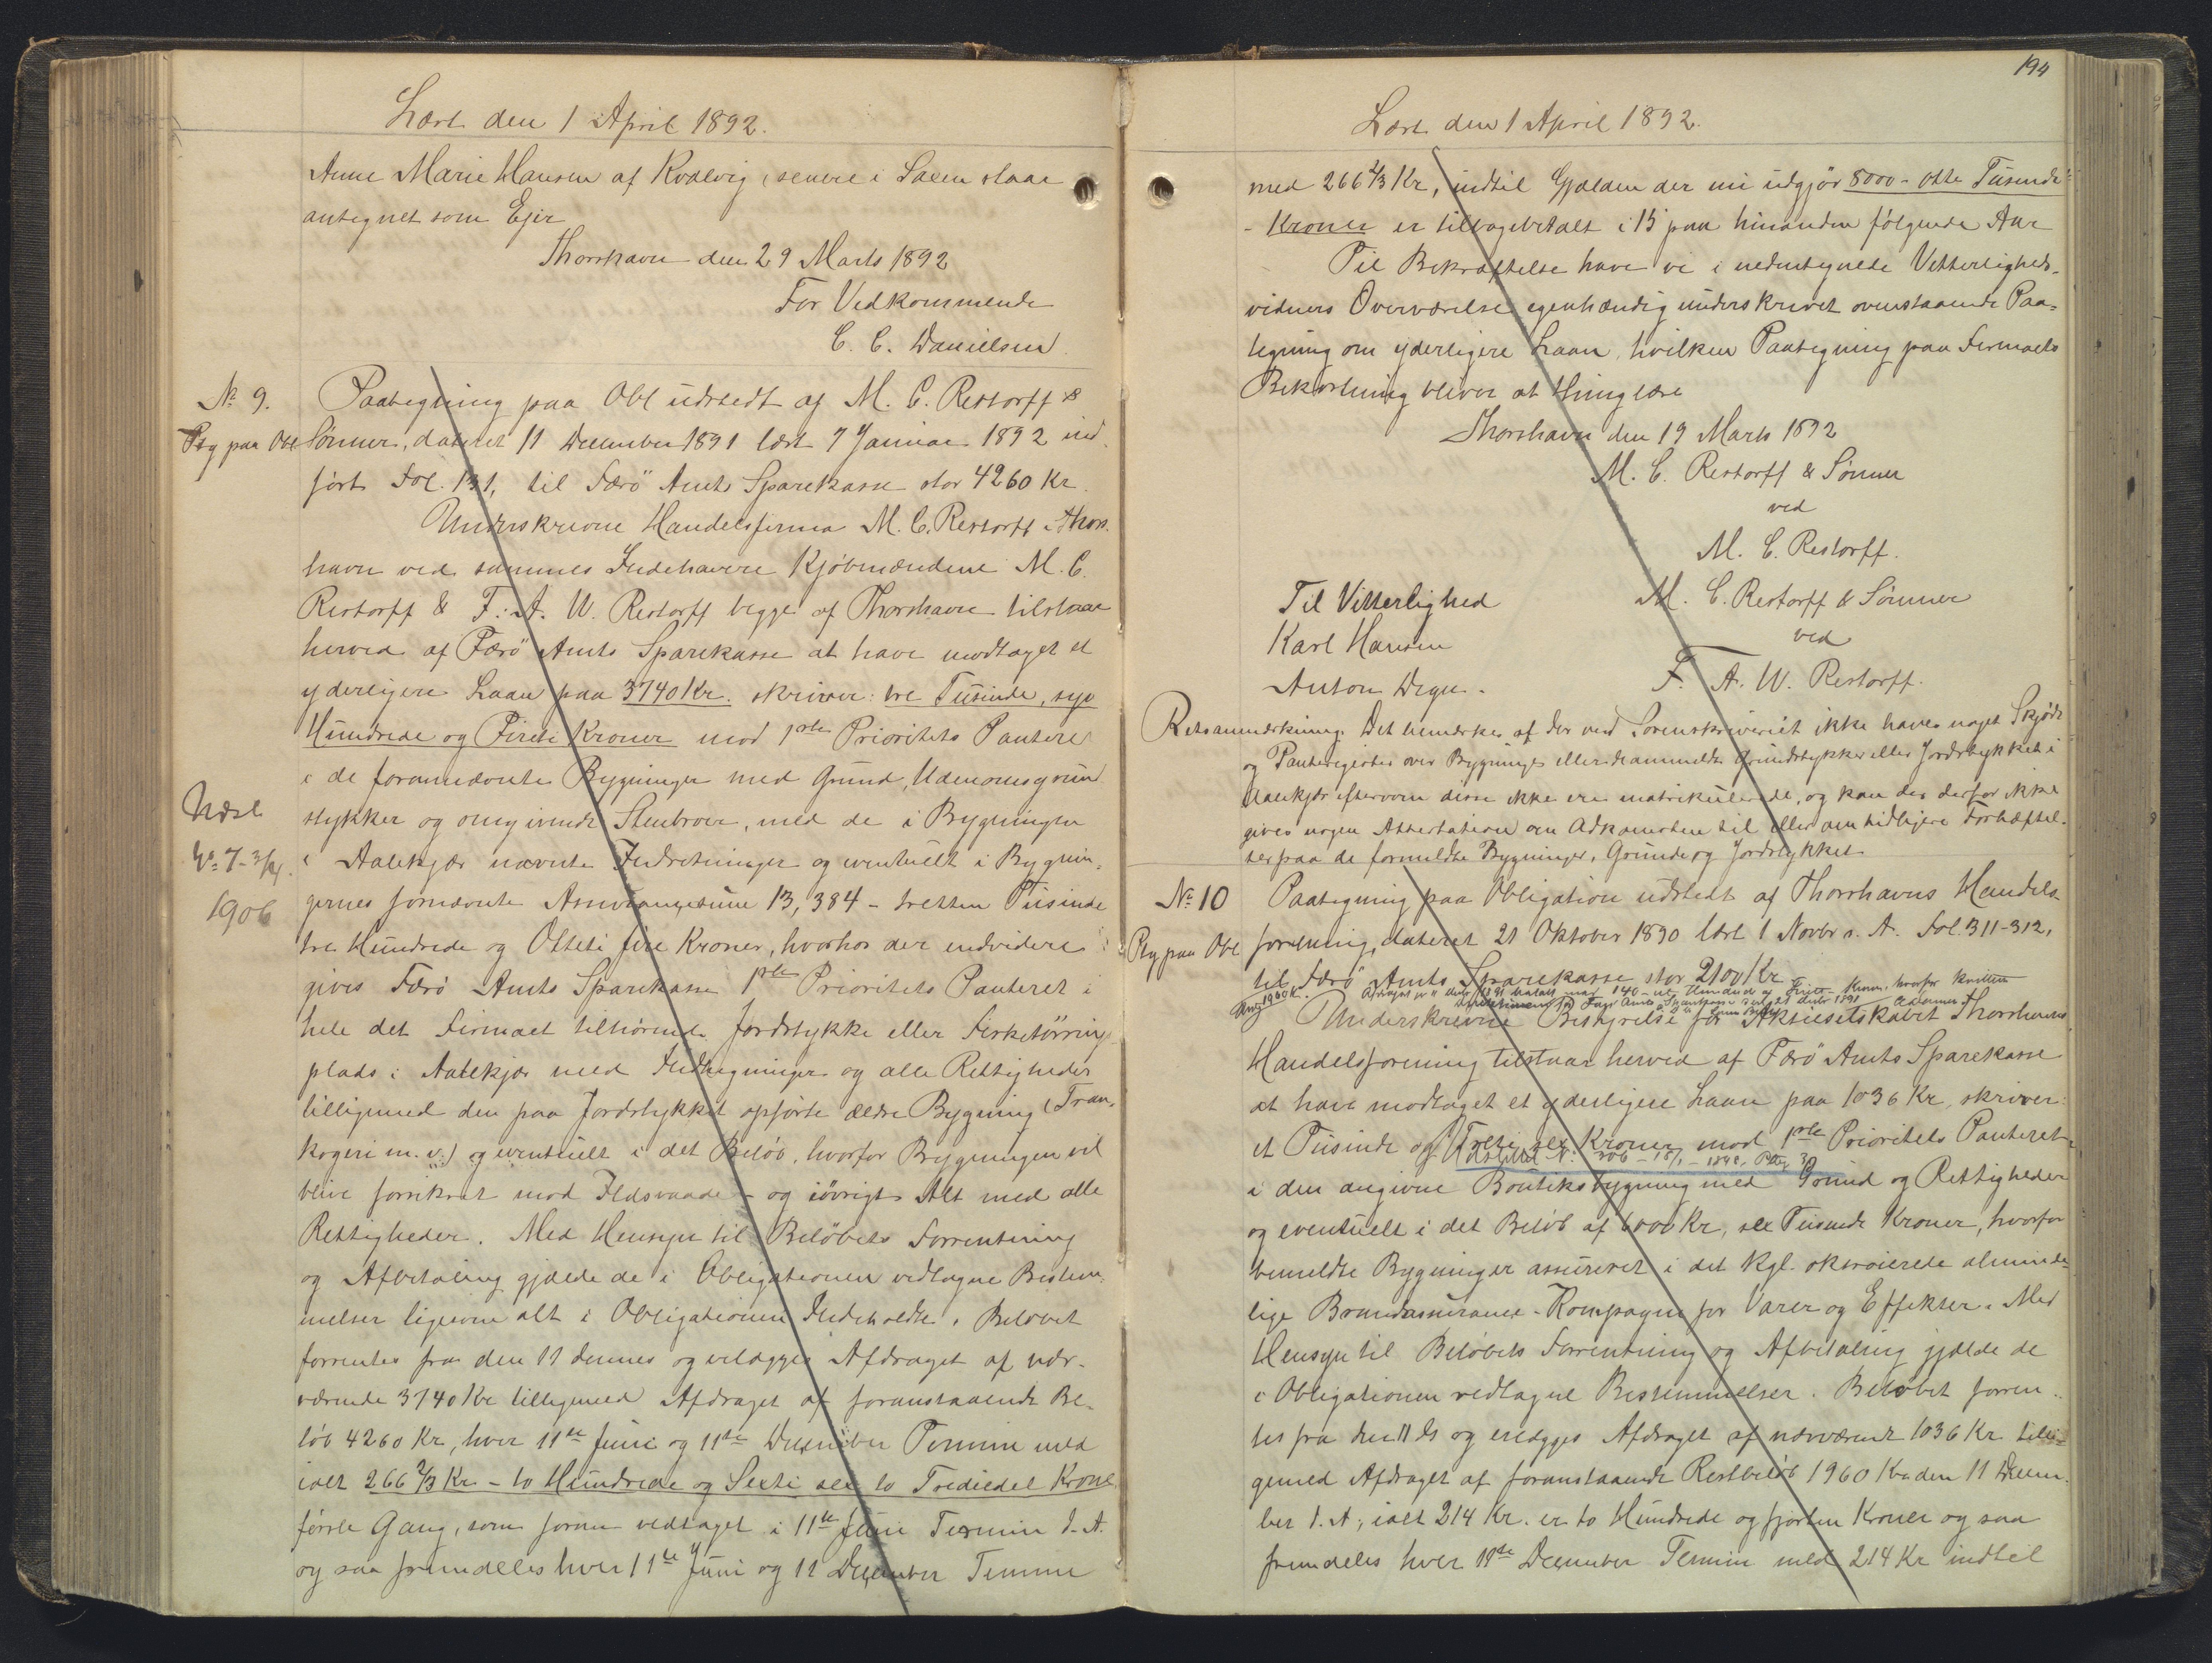 Læst den 1 April 1892.
Anne Marie Hansen af Kvalvig, senere i Saxen staar
antegnet som Ejer
Thorshavn den 29 Marts 1892
For Vedkommende
C. C. Danielsen
No 9. Paategning paa Obl udstedt af M. C. Restorff &
Ptg paa Obl Sønner, dateret 11 December 1891 læst 7 Januar 1892 ind-
ført Fol. 131, til Færö Amts Sparekasse stor 4260 Kr.
Underskrevne Handelsfirma M. C. Restorff i Thors-
havn ved sammes Indehavere Kjøbmændene M. C.
Restorff & F. A. W. Restorff begge af Thorshavn tilstaar
herved af Færö Amts Sparekasse at have modtaget et
yderligere Laan paa 3740 Kr. skriver: tre Tusinde, syv
Hundrede og Fireti Kroner mod 1ste Prioritets Panteret
i de forannævnte Bygninger med Grund, Udenomsgrund
stykker og omgivende Stenbroer, med de i Bygningen
i Aalekjær nævnte Indretninger og eventuelt i Bygnin-
gernes fornævnte Assurancesum 13,384 - tretten Tusinde
tre Hundrede og Otteti fire Kroner, hvorhos der endvidere
gives Færö Amts Sparekasse 1ste Prioritets Panteret i
hele det Firmaet tilhørende Jordstykke eller Fisketörring-
plads i Aalekjær med Indhegninger og alle Rettigheder
tilligemed den paa Jordstykket opførte ældre Bygning (Tran-
kogeri m. v.) og eventuelt i det Beløb, hvorfor Bygningen vil
blive forsikret mod Ildsvaade - og iøvrigt Alt med alle
Rettigheder. Med Hensyn til Beløbets Forrentning
og Afbetaling gjælde de i Obligationen vedtagne Bestem-
melser ligesom alt i Obligationen Indeholdte. Beløbet
forrentes fra den 11 dennes og erlægges Afdraget af nær-
værende 3740 Kr tilligemed Afdraget af foranstaaende Be-
løb 4260 Kr, hver 11te Juni og 11te December Termin med
ialt 266 2/3 Kr - to Hundrede og Sexti sex to Trediedel Krone
første Gang, som foran vedtaget i 11te Juni Termin d. A.
og saa fremdeles hver 11te Juni og 11 December Termin
Udsl.
No 7 - 3/4
1906
194
Læst den 1 April 1892.
med 266 2/3 Kr, indtil Gjælden der nu udgjør 8000 - otte Tusinde
- Kroner er tilbagebetalt i 15 paa hinanden følgende Aar
Til Bekræftelse have vi i nedentegnede Vitterligheds-
vidners Overværelse egenhændig underskrevet ovenstaaende Paa-
tegning om yderligere Laan, hvilken Paategning paa Firmaets
Bekostning bliver at thinglæse
Thorshavn den 19 Marts 1892
M. C. Restorff & Sønner
ved
M. C. Restorff.
Til Vitterlighed M. C. Restorff & Sønner
Karl Hansen ved
Anton Degn. F. A. W. Restorff.
Retsanmærkning. Det bemærkes at der ved Sorenskriveriet ikke haves noget Skjøde
og Panteregister over Bygninger eller de anmeldte Grundstykker eller Jordstykket i
Aalekjær eftersom disse ikke ere matrikulerede, og kan der derfor ikke
gives nogen Attestation om Adkomsten til eller om tidligere Forhæftel-
ser paa de formeldte Bygninger, Grunde og Jordstykket.
No 10 Paategning paa Obligation udstedt af Thorshavns Handels
Ptg paa Obl forening, dateret 21 Oktober 1890 læst 1 Novbr s. A. Fol. 311-312,
til Færö Amts Sparekasse stor 2100 Kr
Afdraget pr 11 Decbr 1891 betalt med 140 - et Hundrede og Fireti - Kroner, hvorfor kvitteres
Færö Amts Sparekasse 11 Decbr 1891
Underskrevne Bestyrelse for Aktieselskabet Thorshavns
Handelsforening tilstaar herved af Færö Amts Sparekasse
at have modtaget et yderligere Laan paa 1036 Kr, skriver:
et Tusinde og Treti sex Kroner mod 1ste Prioritets Panteret
i den angivne Boutiksbygning med Grund og Rettigheder
og eventuelt i det Beløb af 6000 Kr, sex Tusinde Kroner, hvorfor
bemeldte Bygning er assureret i det Kgl. oktroierede alminde-
lige Brandassurance-Kompagni for Varer og Effekter. Med
Hensyn til Beløbets Forrentning og Afbetaling gjælde de
i Obligationen vedtagne Bestemmelser. Beløbet forren-
tes fra den 11 ds og erlægges Afdraget af nærværende 1036 Kr tilli-
gemed Afdraget af foranstaaende Restbeløb 1960 Kr den 11 Decem-
ber d. A., ialt 214 Kr. er to Hundrede og fjorten Kroner og saa
fremdeles hver 11te December Termin med 214 Kr indtil